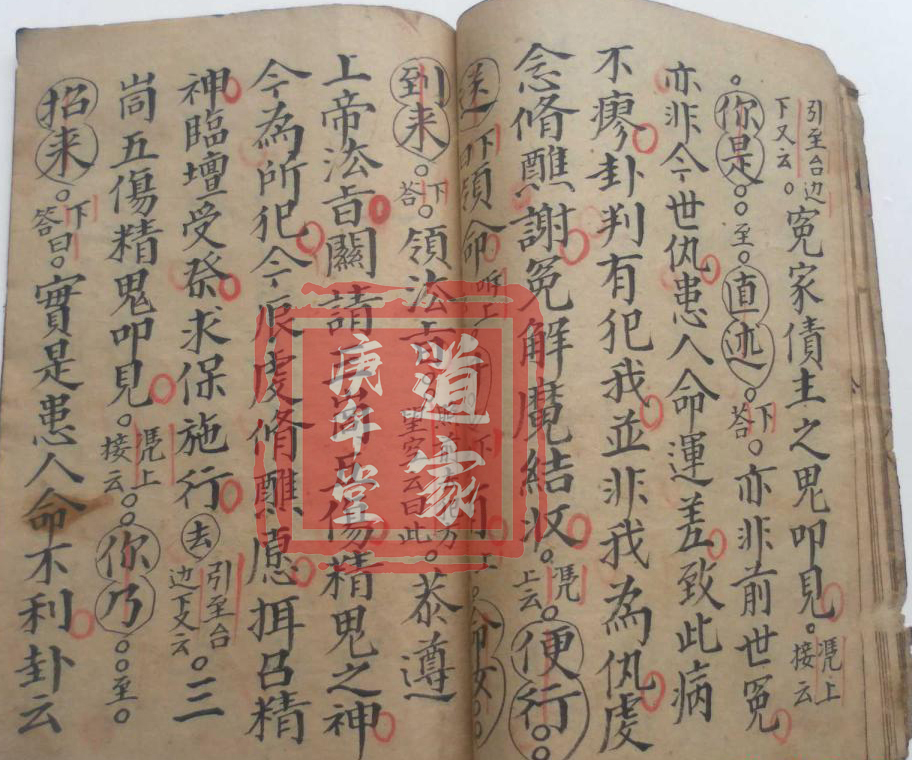 引至台边
下又云。冤家債主之鬼叩見。憑上接云
。你是。。至。直述。下答。亦非前世冤
亦非今世仇患人命運差致此病
不瘳卦判有犯我並非我為仇虔
念脩醮謝冤解魔結收。憑上云。便行。。
下領命
到来。下答。領法旨。望空云曰此。恭遵
上帝法旨關請五傷精鬼之神
今為所犯今辰虔脩醮愿
召精
神臨壇受祭求保施行 去 引至台边下又云。三
崗五傷精鬼叩見。憑上接云。。你乃。。至。
招来。下答曰。實是患人命不利卦云
道家
庚年堂